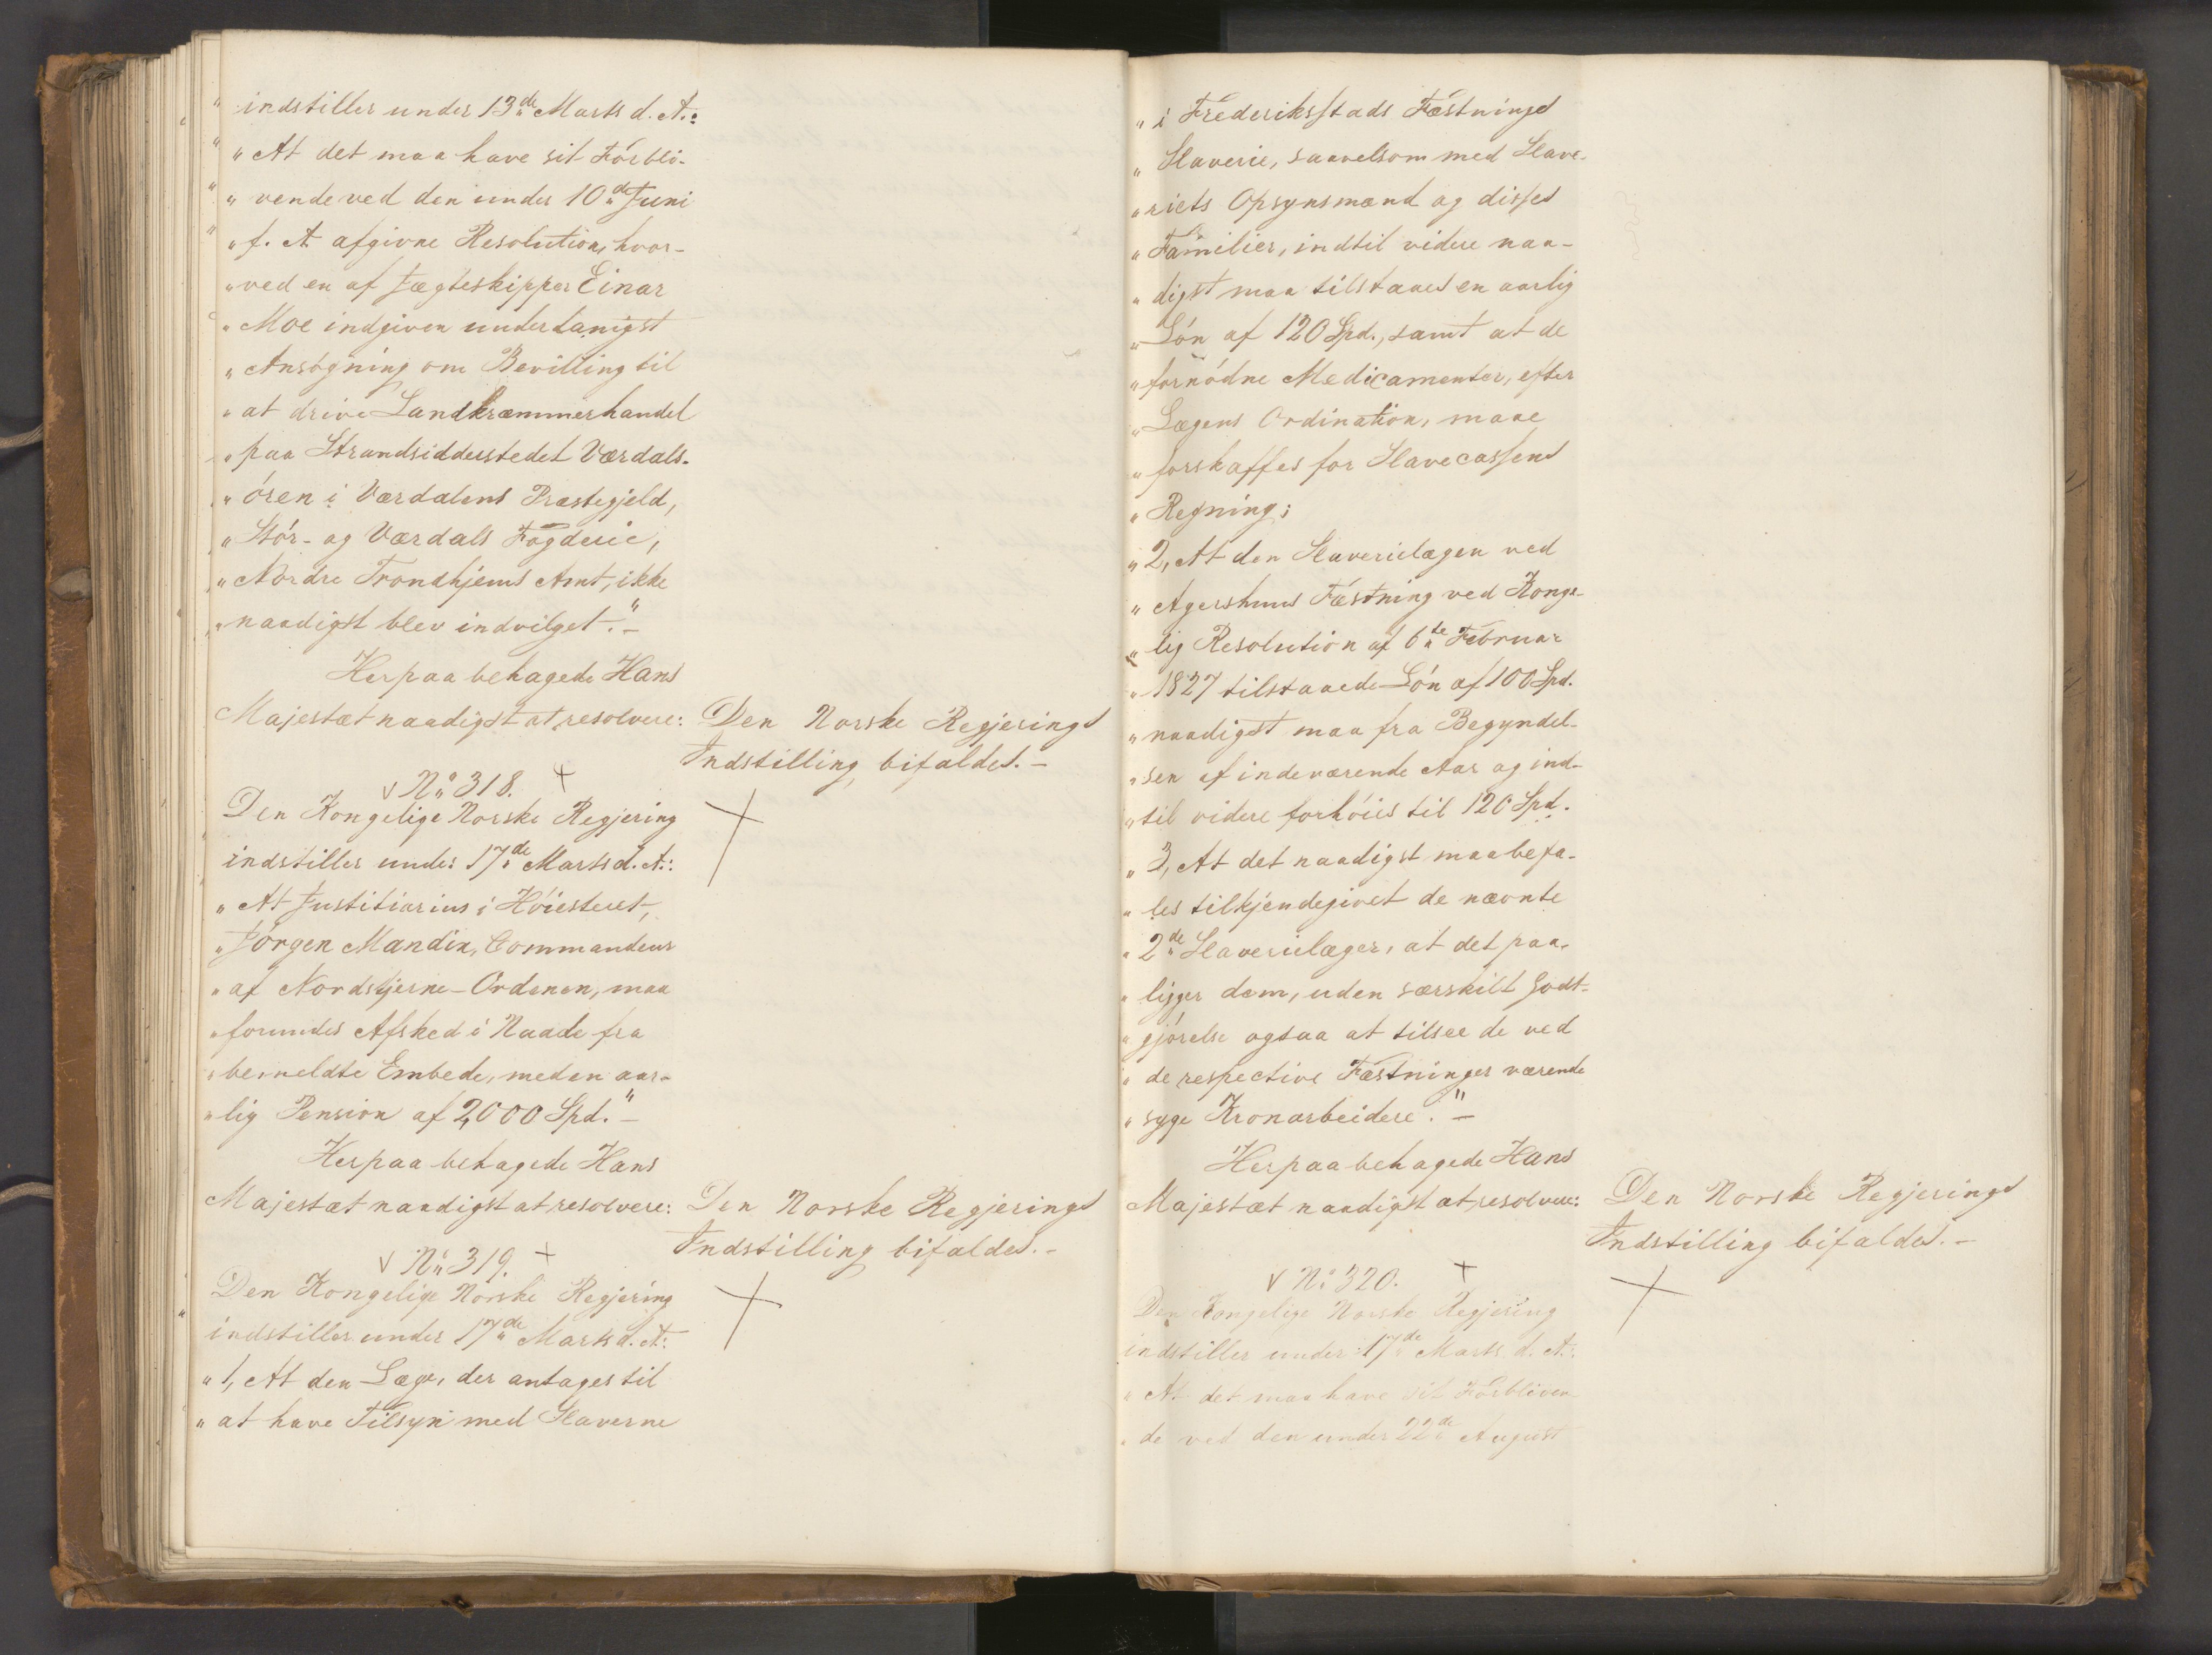 indstiller under 13de Marts d. A.:
" At det maa have sit Forbli-
" vende ved den under 10de Juni
" f. A. afgivne Resolution, hvor-
" ved en af Jægteskipper Einar
" Moe indgiven underdanigst
" Ansøgning om Bevilling til
" at drive Landkræmmerhandel
" paa Strandsidderstedet Værdals-
" øren i Værdalens Præstegjeld,
" Stør- og Værdals Fogderie,
" Nordre Trondhjems Amt, ikke
" naadigst blev indvilget." -
Herpaa behagede Hans
Majestæt naadigst at resolvere:
Den Norske Regjerings
Indstilling bifaldes. -
No 318.
Den Kongelige Norske Regjering
indstiller under 17de Marts d. A.:
" At Justitiarius i Høiesteret,
" Jørgen Mandix, Commandeur
" af Nordstjerne-Ordenen, maa
" forundes Afsked i Naade fra
" bemeldte Embede, med en aar-
" lig Pension af 2,000 Spd." -
Herpaa behagede Hans
Majestæt naadigst at resolvere:
Den Norske Regjerings
Indstilling bifaldes. -
No 319.
Den Kongelige Norske Regjering
indstiller under 17de Marts d. A.:
" 1, At den Læge, der antages til
" at have Tilsyn med Slaverne
" i Frederiksstads Fæstnings
" Slaverie, saavelsom med Slave-
" riets Opsynsmænd og disses
" Familier, indtil videre naa-
" digst maa tilstaaes en aarlig
" Løn af 120 Spd., samt at de
" fornødne Medicamenter, efter
" Lægens Ordination, maae
" forskaffes for Slavecassens
" Regning;
" 2, At den Slaverielægen ved
" Agershuus Fæstning ved Konge-
" lig Resolution af 6te Februar
" 1827 tilstaaede Løn af 100 Spd.
" naadigst maa fra Begyndel-
" sen af indeværende Aar og ind-
" til videre forhøies til 120 Spd.
" 3, At det naadigst maa befa-
" les tilkjendegivet de nævnte
" 2de Slaverielæger, at det paa-
" ligger dem, uden særskilt Godt-
" gjørelse ogsaa at tilsee de ved
" de respective Fæstninger værende
" syge Kronarbeidere." -
Herpaa behagede Hans
Majestæt naadigst at resolvere:
Den Norske Regjerings
Indstilling bifaldes. -
No 320.
Den Kongelige Norske Regjering
indstiller under 17de Marts d. A.:
" At det maa have sit Forbliven-
" de ved den under 22de August